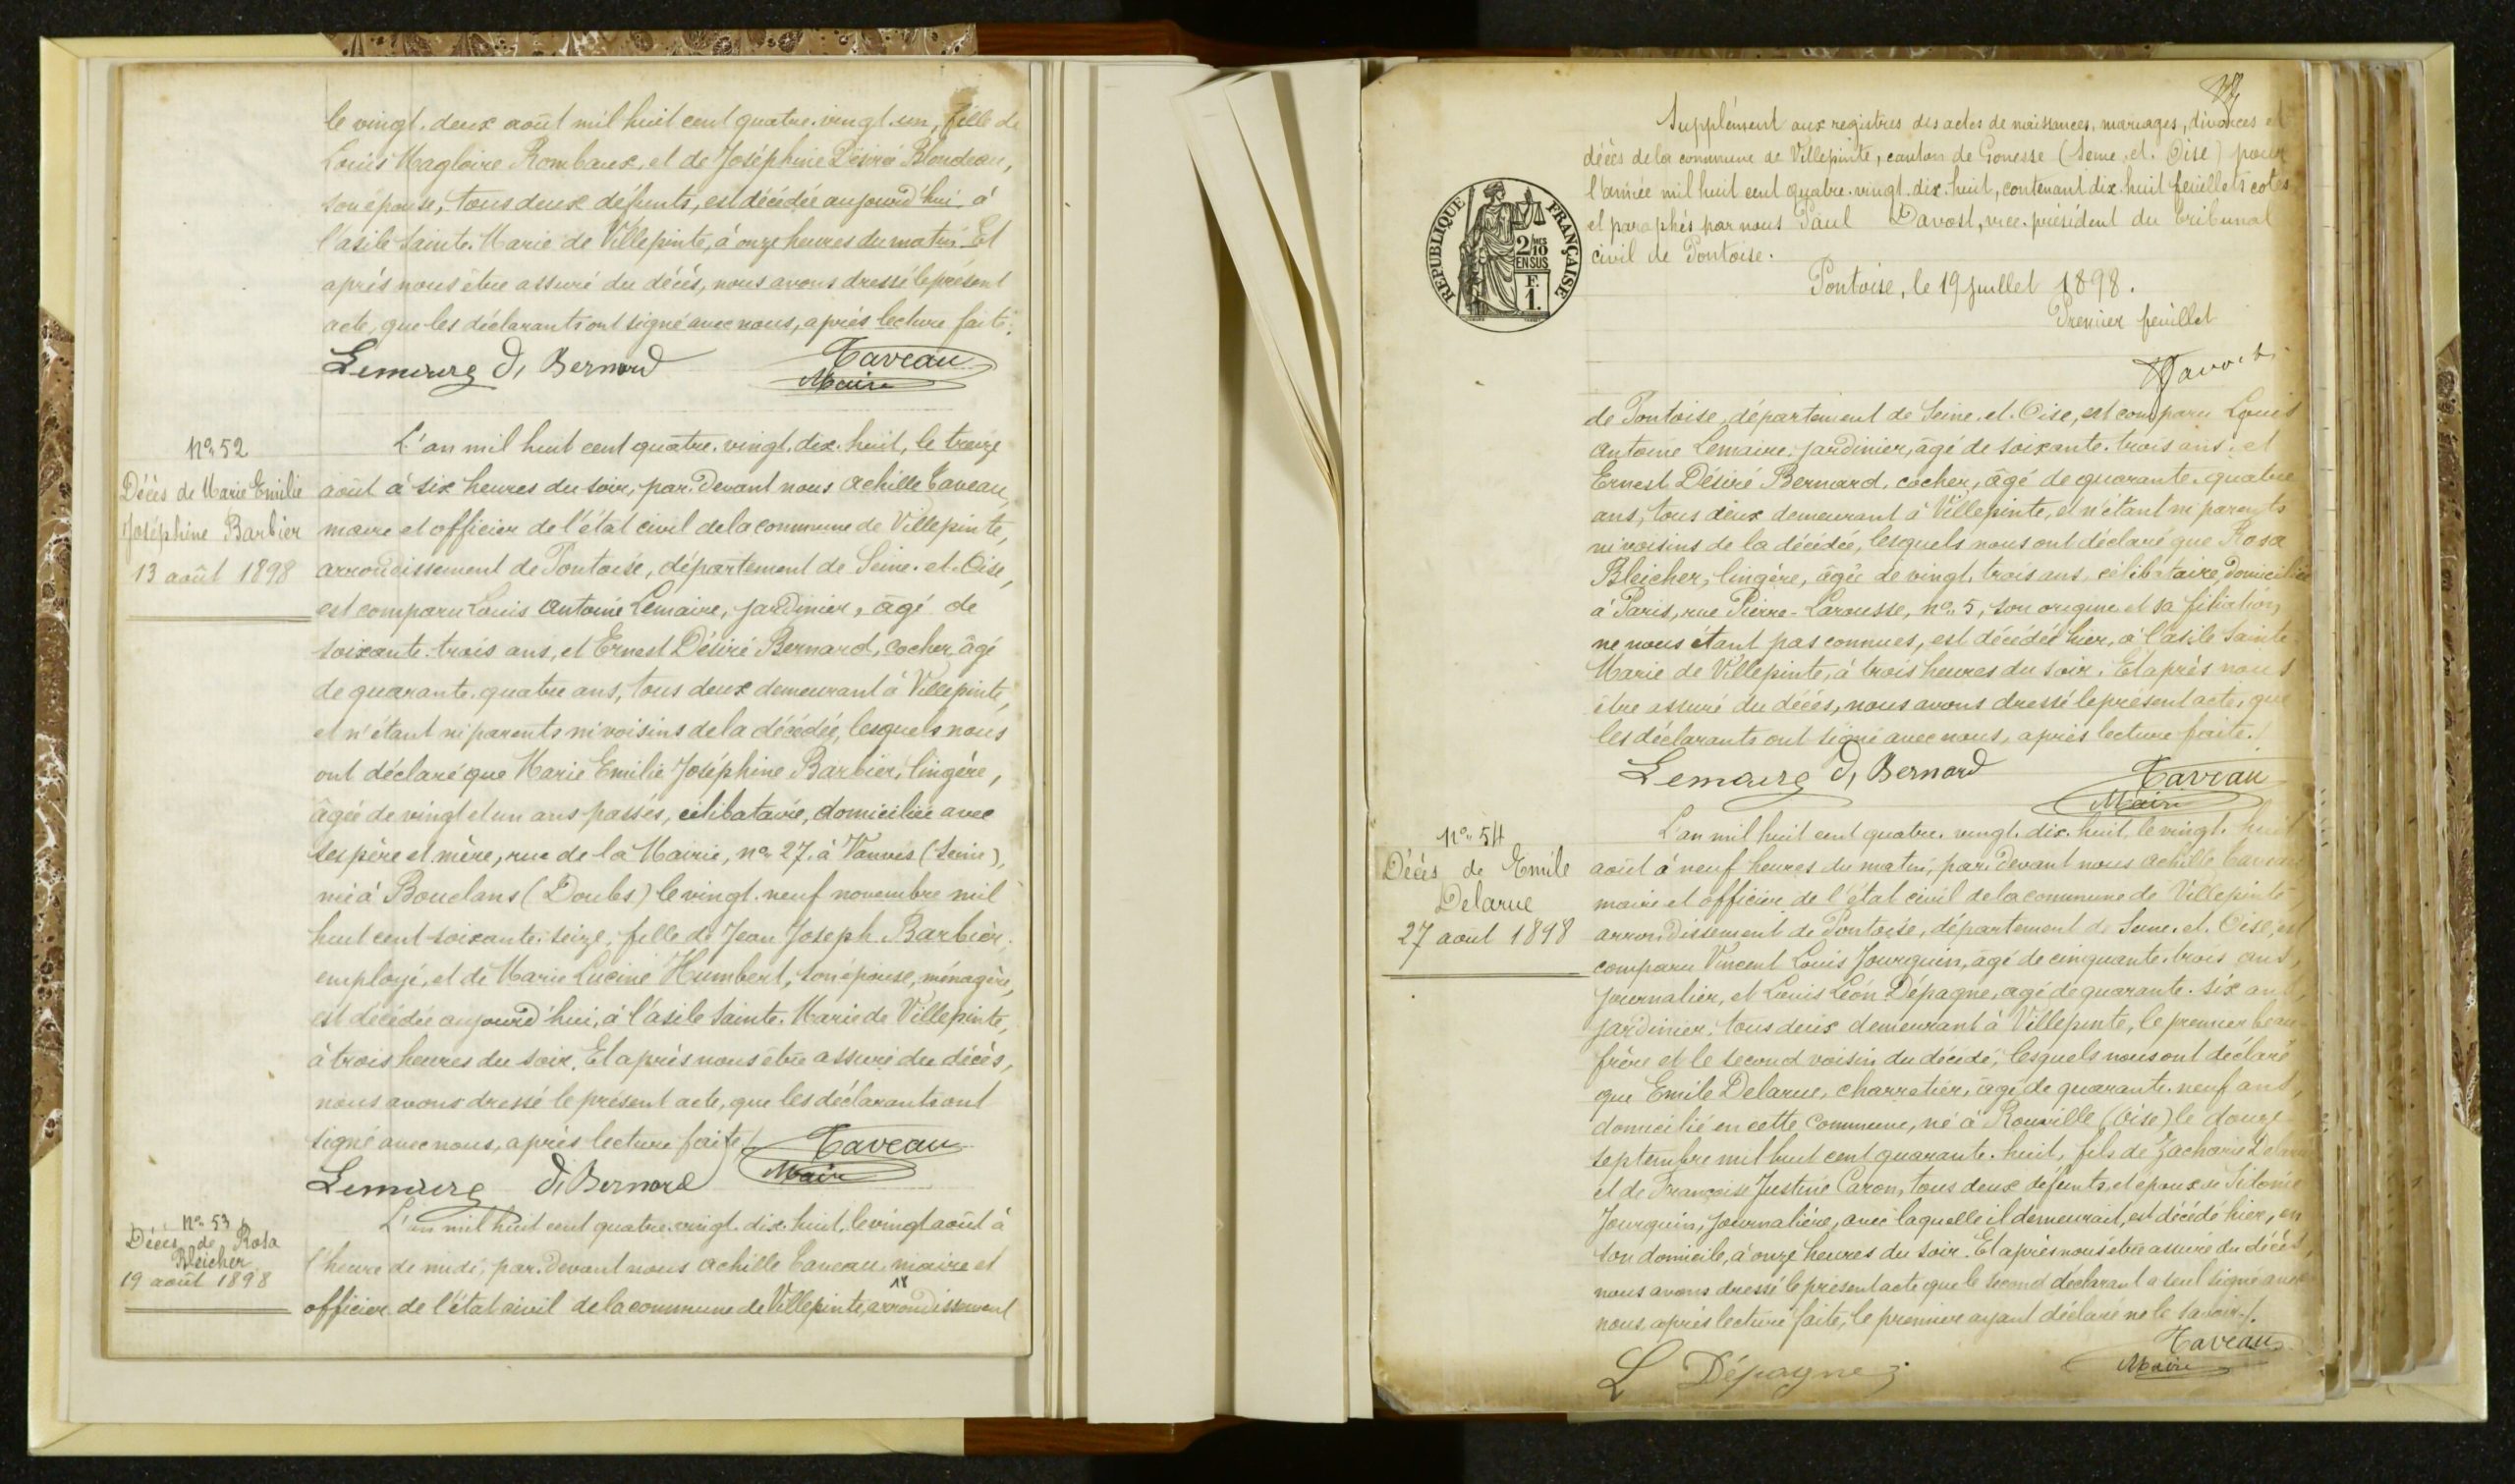 le vingt-deux août mil huit cent quatre-vingt-un, fille de
Louis Magloire Rombaux, et de Joséphine Désirée Blondeau,
son épouse, tous deux défunts, est décédée aujourd'hui à
l'asile Sainte-Marie de Villepinte, à onze heures du matin. Et
après nous être assuré du décès, nous avons dressé le présent
acte, que les déclarants ont signé avec nous, après lecture faite.
Lemaire D. Bernard Taveau
Maire
No 52
Décès de Marie Emilie
Joséphine Barbier
13 août 1898
L'an mil huit cent quatre-vingt-dix-huit, le treize
août à six heures du soir, par-devant nous Achille Taveau,
maire et officier de l'état civil de la commune de Villepinte,
arrondissement de Pontoise, département de Seine-et-Oise,
est comparu Louis Antoine Lemaire, jardinier, âgé de
soixante-trois ans, et Ernest Désiré Bernard, cocher, âgé
de quarante-quatre ans, tous deux demeurant à Villepinte,
et n'étant ni parents ni voisins de la décédée, lesquels nous
ont déclaré que Marie Emilie Joséphine Barbier, lingère,
âgée de vingt et un ans passés, célibataire, domiciliée avec
ses père et mère, rue de la Mairie, no 27, à Vanves (Seine),
née à Bouclans (Doubs) le vingt-neuf novembre mil
huit cent soixante-seize, fille de Jean Joseph Barbier,
employé, et de Marie Lucine Humbert, son épouse, ménagère,
est décédée aujourd'hui, à l'asile Sainte-Marie de Villepinte,
à trois heures du soir. Et après nous être assuré du décès,
nous avons dressé le présent acte, que les déclarants ont
signé avec nous, après lecture faite. Taveau
Lemaire D. Bernard Maire
No 53
Décès de Rosa
Bleicher
19 août 1898
L'an mil huit cent quatre-vingt-dix-huit, le vingt août à
l'heure de midi, par-devant nous Achille Taveau, maire et
officier de l'état civil de la commune de Villepinte, arrondissement
Supplément aux registres des actes de naissances, mariages, divorces et
décès de la commune de Villepinte, canton de Gonesse (Seine-et-Oise) pour
l'année mil huit cent quatre-vingt-dix-huit, contenant dix-huit feuillets cotés
et paraphés par nous Paul Davost, vice-président du tribunal
civil de Pontoise.
Pontoise, le 19 juillet 1898.
Premier feuillet
Davost
REPUBLIQUE FRANÇAISE
2/10
EN SUS
F.
1.
de Pontoise, département de Seine-et-Oise, est comparu Louis
Antoine Lemaire, jardinier, âgé de soixante-trois ans, et
Ernest Désiré Bernard, cocher, âgé de quarante-quatre
ans, tous deux demeurant à Villepinte, et n'étant ni parents
ni voisins de la décédée, lesquels nous ont déclaré que Rosa
Bleicher, lingère, âgée de vingt-trois ans, célibataire, domiciliée
à Paris, rue Pierre-Larousse, no 5, son origine et sa filiation
ne nous étant pas connues, est décédée hier, à l'asile Sainte
Marie de Villepinte, à trois heures du soir. Et après nous
être assuré du décès, nous avons dressé le présent acte, que
les déclarants ont signé avec nous, après lecture faite.
Lemaire D. Bernard Taveau
Maire
No 54
Décès de Emile
Delarue
27 août 1898
L'an mil huit cent quatre-vingt-dix-huit, le vingt-huit
août à neuf heures du matin, par-devant nous Achille Taveau
maire et officier de l'état civil de la commune de Villepinte,
arrondissement de Pontoise, département de Seine-et-Oise, est
comparu Vincent Louis Jourquin, âgé de cinquante-trois ans,
journalier, et Louis Léon Dépagne, âgé de quarante-six ans,
jardinier, tous deux demeurant à Villepinte, le premier beau-
frère et le second voisin du décédé, lesquels nous ont déclaré
que Emile Delarue, charretier, âgé de quarante-neuf ans,
domicilié en cette commune, né à Rouville (Oise) le douze
septembre mil huit cent quarante-huit, fils de Zacharie Delarue
et de Françoise Justine Caron, tous deux défunts, et époux de Sidonie
Jourquin, journalière, avec laquelle il demeurait, est décédé hier, en
son domicile, à onze heures du soir. Et après nous être assuré du décès,
nous avons dressé le présent acte que le second déclarant a seul signé avec
nous, après lecture faite, le premier ayant déclaré ne le savoir.
L Dépagne Taveau
Maire